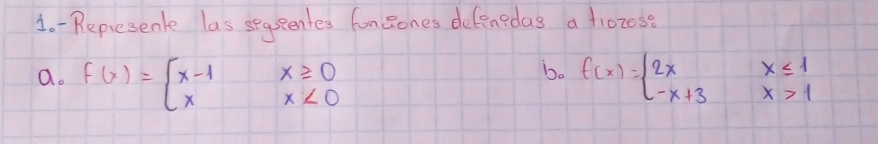 1.- Represente las siguientes funciones definidas a trozos:
a. f(x) = { x-1 x ≥ 0 b. f(x) = { 2x x ≤ 1
x x < 0 -x+3 x > 1